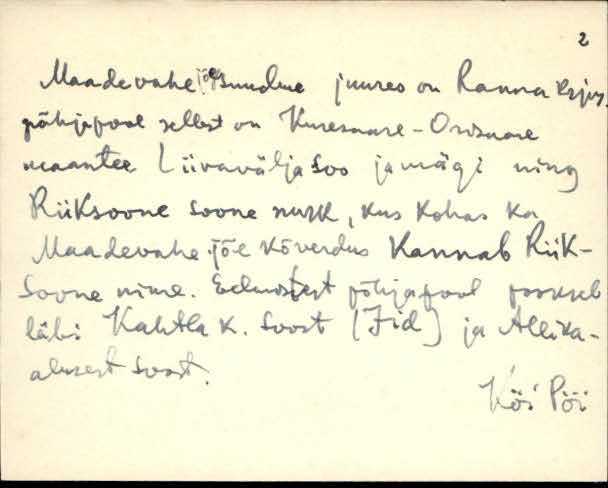 2
Maadevahe jõe suudme juures on Ranna
põhjapool sellest on Kuressaare - Orissaare
maantee Liivaväljasoo ja mägi ning
Riiksoone soone nurk, kus kohas ka
Maadevahe jõe kõverdus kannab Riik-
soone nime. Eelmistest põhjapool
läbi Kahtla k. soost (Jid) ja Allika-
alusest soost.
Pöi